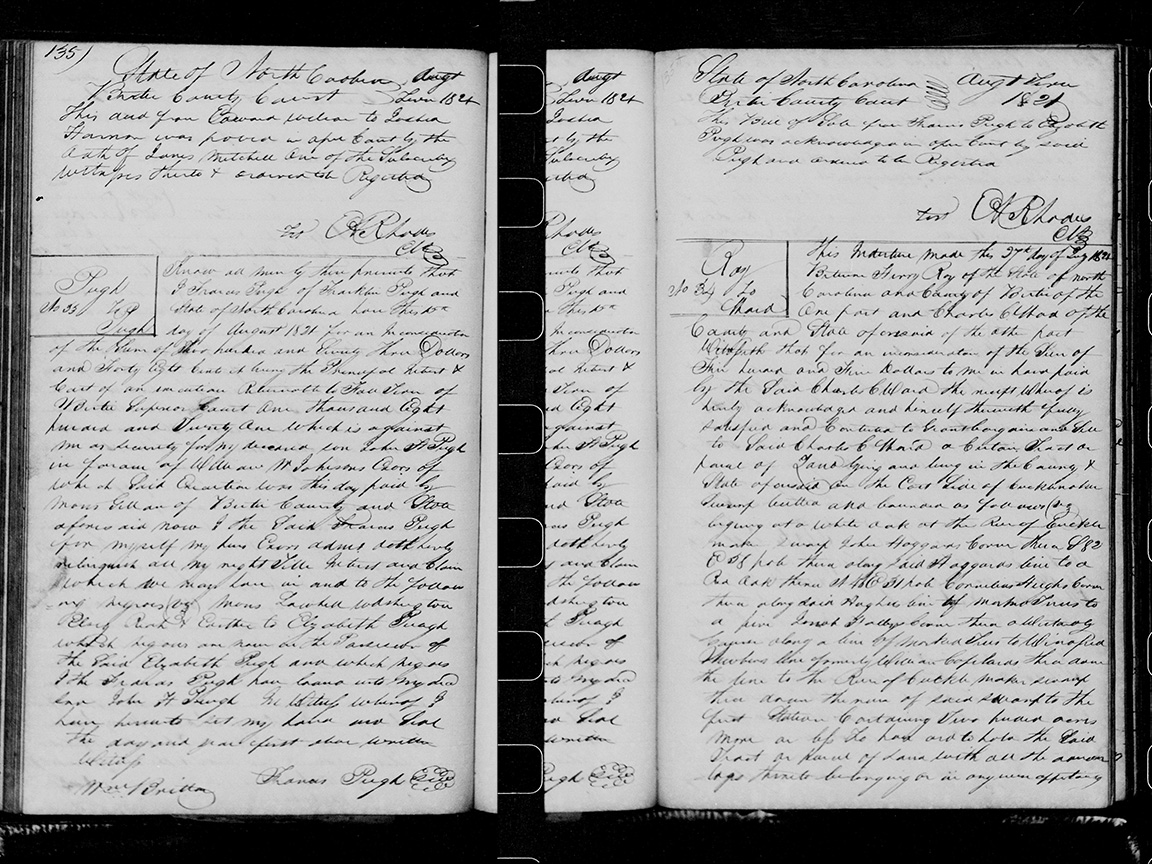 135)
State of North Carolina Augt
Bertie County Court Term 1821
This deed from Edward Wilson to Joshua
Harmon was proved in open Court by the
Oath of James Mitchell One of the Subscribing
Witness thereto & ordered to be Registered
Test EA Rhodes
Clk
Pugh
No 33 to
Pugh
Know all men by these presents that
I Francis Pugh of Franklin Pugh and
State of North Carolina have this
day of August 1821 for an in consideration
of the Sum of two hundred and Seventy three Dollars
and Forty eight Cents it being the Principal Interest &
Cost of an execution Returnable to Fall Term of
Bertie Superior Court One thousand Eight
hundred and Twenty One which is against
me as Security for my deceased son John H Pugh
in favour of William W Johnsons Exors of
which Said Execution was this day paid by
Moses Gillam of Bertie County and State
aforesaid now I the Said Francis Pugh
for myself my heirs Exors admrs doth hereby
relinquish all my right Title Interest and Claim
which we may have in and to the follow
ing negroes (viz) Moses Washington
to Elizabeth Pugh
which negroes are now in the Possession of
the Said Elizabeth Pugh and which negroes
I the Francis Pugh have loaned unto my decd
son John H Pugh In Witness whereof I
have hereunto Set my hand and Seal
the day and year first above written
Witness
Wm Britton Francis Pugh
Augt
Term 1821
Joshua
by the
Subscribing
Rhodes
Clk
that
Pugh and
this
in consideration
three Dollars
Interest &
Term of
Eight
against
John H Pugh
Exors of
paid by
and State
Francis Pugh
doth hereby
and Claim
the follow
Washington
Pugh
Possession of
which negroes
unto my decd
whereof I
and Seal
written
Pugh
State of North Carolina Augt Term
Bertie County Court 1821
This Bill of Sale from Francis Pugh to Elizabeth
Pugh was acknowledged in open Court by said
Pugh and ordered to be Registered
Test EA Rhodes
Clk
Ray
No 34 to
Ward
This Indenture made this 27th day of 1821
Between Henry Ray of the State of North
Carolina and County of Bertie of the
One part and Charles C Ward of the
County and State aforesaid of the other part
Witnesseth that for an in consideration of the Sum of
Five hundred and Five Dollars to me in hand paid
by the Said Charles C Ward the receipt Whereof is
hereby acknowledged and himself therewith fully
satisfied and Contented to Grant bargain and Sell
to Said Charles C Ward a Certain Tract or
parcel of Land lying and being in the County &
State aforesaid on the East Side of Cucklemaker
Swamp butted and bounded as follows (viz)
beginning at a white oak at the Run of Cuckle
maker Swamp John Hoggards Corner then S 82
E 28 pole then along Said Hoggards line to a
Red Oak then 31 pole Cornelius Hughs Corner
then along Said Hughs line of marked Trees to
a pine Corner then a Westerly
Course along a line of marked Trees to Winnefred
line formerly William Copelands then down
the line to the Run of Cuckle maker swamp
then down the run of said Swamp to the
first Station Containing Two hundred acres
more or less To have and to hold the Said
Tract or parcel of Land with all the appurten
ances thereto belonging or in any wise appertaining